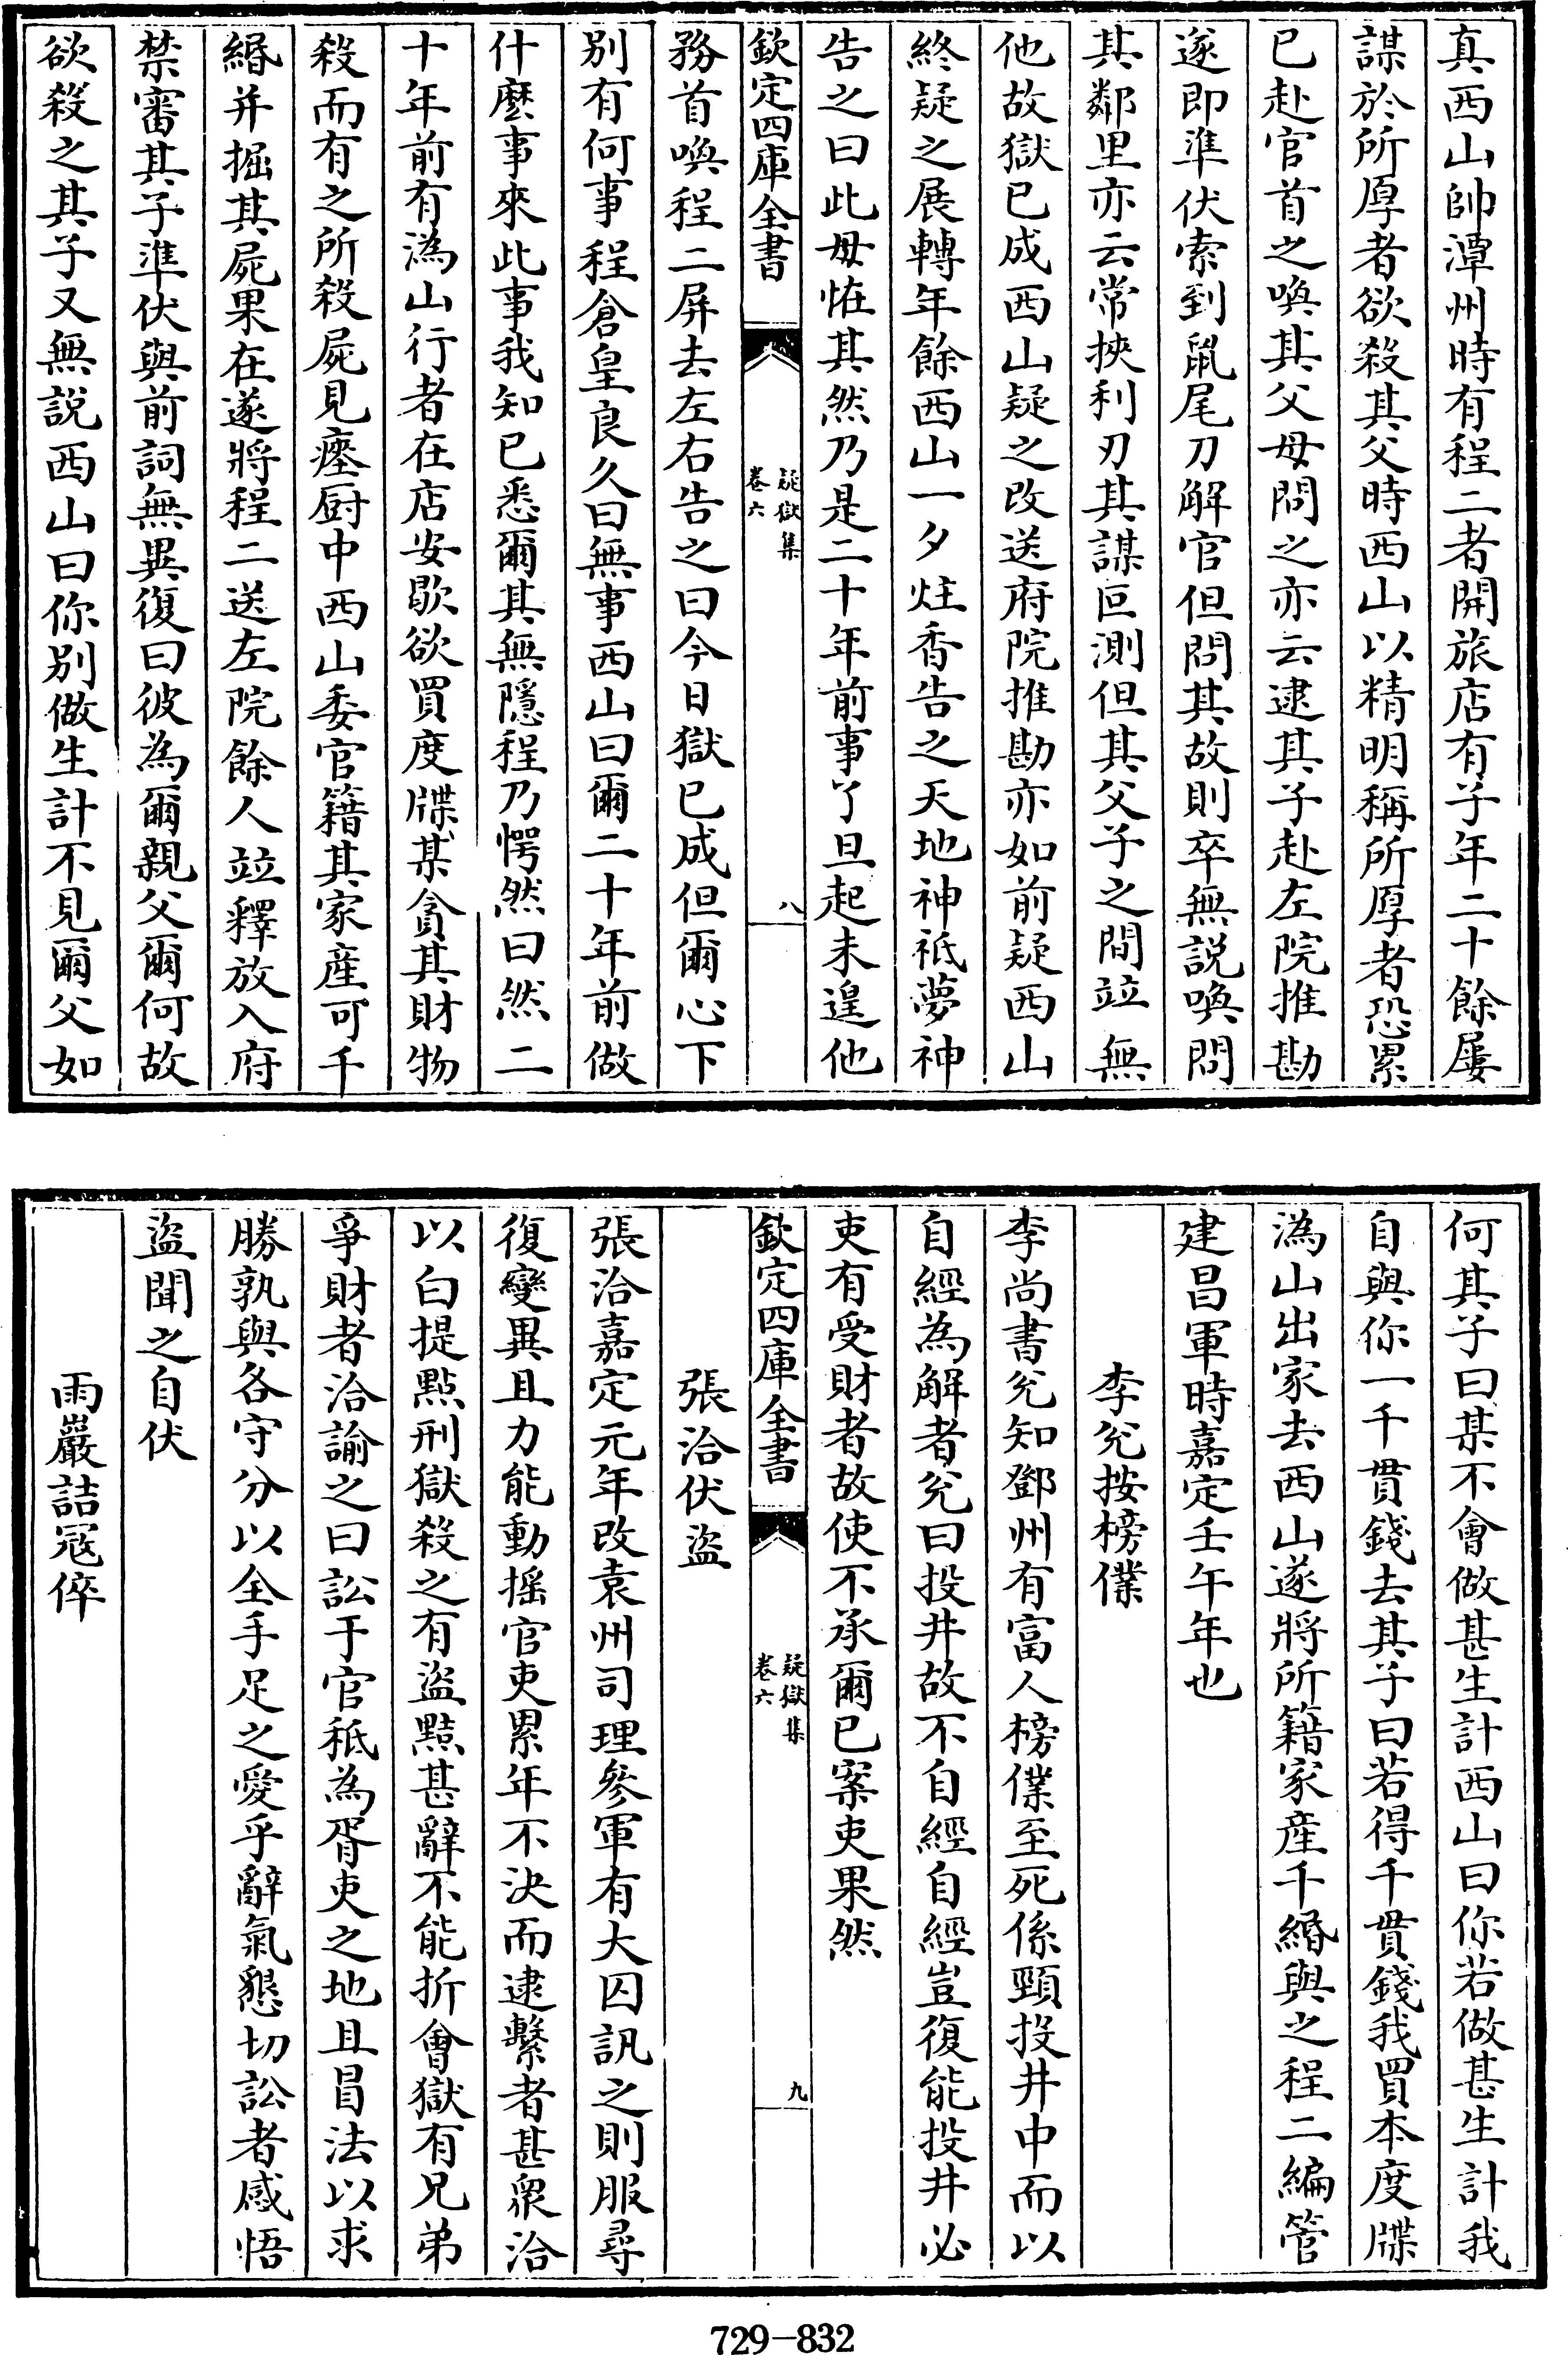 真西山帥潭州時有程二者開旅店有子年二十餘屢
謀於所厚者欲殺其父時西山以精明稱所厚者恐累
已赴官首之喚其父母問之亦云逮其子赴左院推勘
遂即準伏索到鼠尾刀解官但問其故則卒無説喚問
其鄰里亦云常挾利刃其謀叵測但其父子之間竝無
他故獄已成西山疑之改送府院推勘亦如前疑西山
終疑之展轉年餘西山一夕炷香告之天地神祇夢神
告之曰此毋恠其然乃是二十年前事了旦起未遑他
欽定四庫全書
疑獄集
卷六
八
務首喚程二屏去左右告之曰今日獄已成但爾心下
別有何事程倉皇良久曰無事西山曰爾二十年前做
什麽事來此事我知已悉爾其無隱程乃愕然曰然二
十年前有溈山行者在店安歇欲買度牒某貪其財物
殺而有之所殺屍見瘞厨中西山委官籍其家産可千
緡并掘其屍果在遂將程二送左院餘人竝釋放入府
禁審其子準伏與前詞無異復曰彼為爾親父爾何故
欲殺之其子又無説西山曰你別做生計不見爾父如
何其子曰某不會做甚生計西山曰你若做甚生計我
自與你一千貫錢去其子曰若得千貫錢我買本度牒
溈山出家去西山遂將所籍家産千緡與之程二編管
建昌軍時嘉定壬午年也
李兊按榜僕
李尚書兊知鄧州有富人榜僕至死係頸投井中而以
自經為解者兊曰投井故不自經自經豈復能投井必
吏有受財者故使不承爾已案吏果然
欽定四庫全書
疑獄集
卷六
九
張洽伏盜
張洽嘉定元年改袁州司理參軍有大囚訊之則服尋
復變異且力能動摇官吏累年不決而逮繫者甚衆洽
以白提點刑獄殺之有盜黠甚辭不能折會獄有兄弟
爭財者洽諭之曰訟于官秪為胥吏之地且冒法以求
勝孰與各守分以全手足之愛乎辭氣懇切訟者感悟
盜聞之自伏
雨巖詰冦倅
729-832